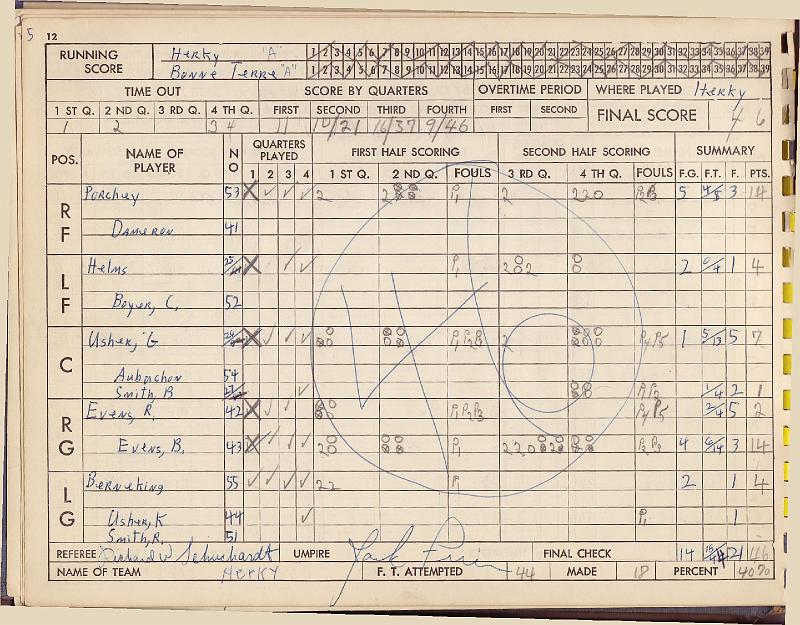 12
RUNNING SCORE
Herky "A" 1 2 3 4 5 6 7 8 9 10 11 12 13 14 15 16 17 18 19 20 21 22 23 24 25 26 27 28 29 30 31 32 33 34 35 36 37 38 39
Bonne Terre "A" 1 2 3 4 5 6 7 8 9 10 11 12 13 14 15 16 17 18 19 20 21 22 23 24 25 26 27 28 29 30 31 32 33 34 35 36 37 38 39
TIME OUT SCORE BY QUARTERS OVERTIME PERIOD WHERE PLAYED Herky
1 ST Q. 2 ND Q. 3 RD Q. 4 TH Q. FIRST SECOND THIRD FOURTH FIRST SECOND FINAL SCORE 46
1 2 3 4 11 10/21 16/37 9/46
POS. NAME OF PLAYER NO QUARTERS PLAYED FIRST HALF SCORING SECOND HALF SCORING SUMMARY
1 2 3 4 1 ST Q. 2 ND Q. FOULS 3 RD Q. 4 TH Q. FOULS F.G. F.T. F. PTS.
RF
Porchey 53 2 2 P1 2 220 P2P3 5 4/5 3 14
Dameron 41
LF
Helms P1 202 0 2 0/4 1 4
Boyer, C. 52
C
Usher, G P1P2P3 2 P4P5 1 5/13 5 7
Aubuchon 54
Smith, B P1P2 1/4 2 1
RG
Evens, R. 42 P1P2P3 P4P5 2/4 5 2
Evens, B. 43 P1 P2P3 4 6/14 3 14
LG
Berneking 55 22 P1 2 1 4
Usher, K 44 P1 1
Smith, R. 51
REFEREE Richard W Schuchardt UMPIRE FINAL CHECK 14 21 46
NAME OF TEAM Herky F. T. ATTEMPTED 44 MADE 18 PERCENT 40%